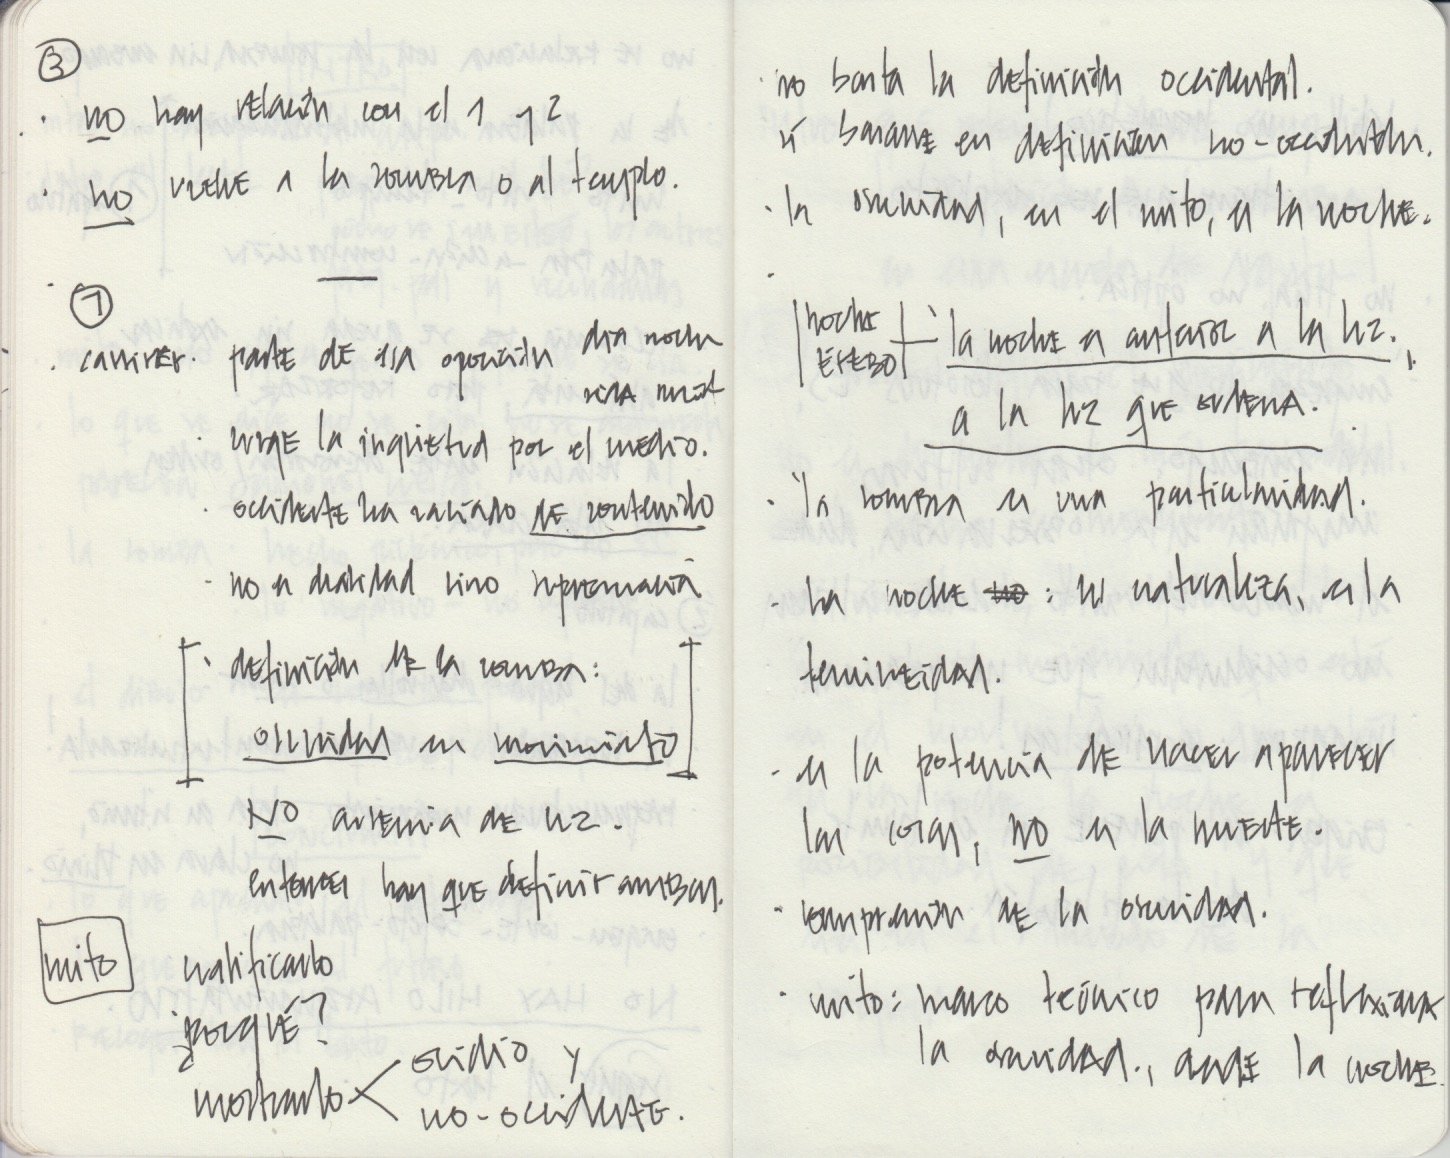 ③
· no hay relación con el 1 y 2
· no vuelve a la sombra o al templo.
①
cassirer · parte de esa oposición día noche
vida muert
· surge la inquietud por el medio.
· occidente ha vaciado de contenido
· no es dualidad sino supremacía
· definición de la sombra:
oscuridad en movimiento
NO ausencia de luz.
entonces hay que definir ambas.
mito
cualificarlo
¿porqué?
mostrarlo
occidio y
no-occidente.
· no basta la definición occidental.
sí basarse en definición no-occidental.
· la oscuridad, en el mito, es la noche.
·
noche
EREBO
· la noche es anterior a la luz.,
a la luz que ordena.
· la sombra es una particularidad.
· La noche no : su naturaleza, es la
temineidad.
· es la potencia de hacer aparecer
las cosas, no es la muerte.
· comprensión de la oscuridad.
· mito: marco teórico para reflexionar
la oscuridad., desde la noche.